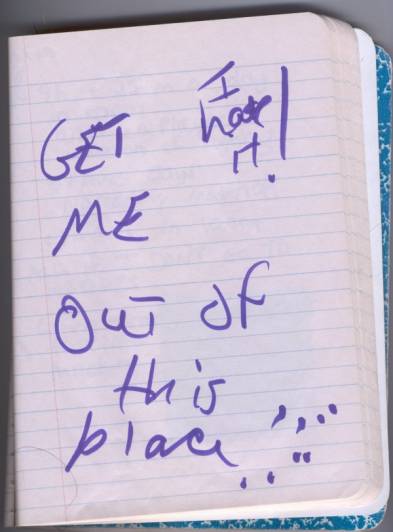 GET
ME
OUT OF
this
place
I
hate
it!